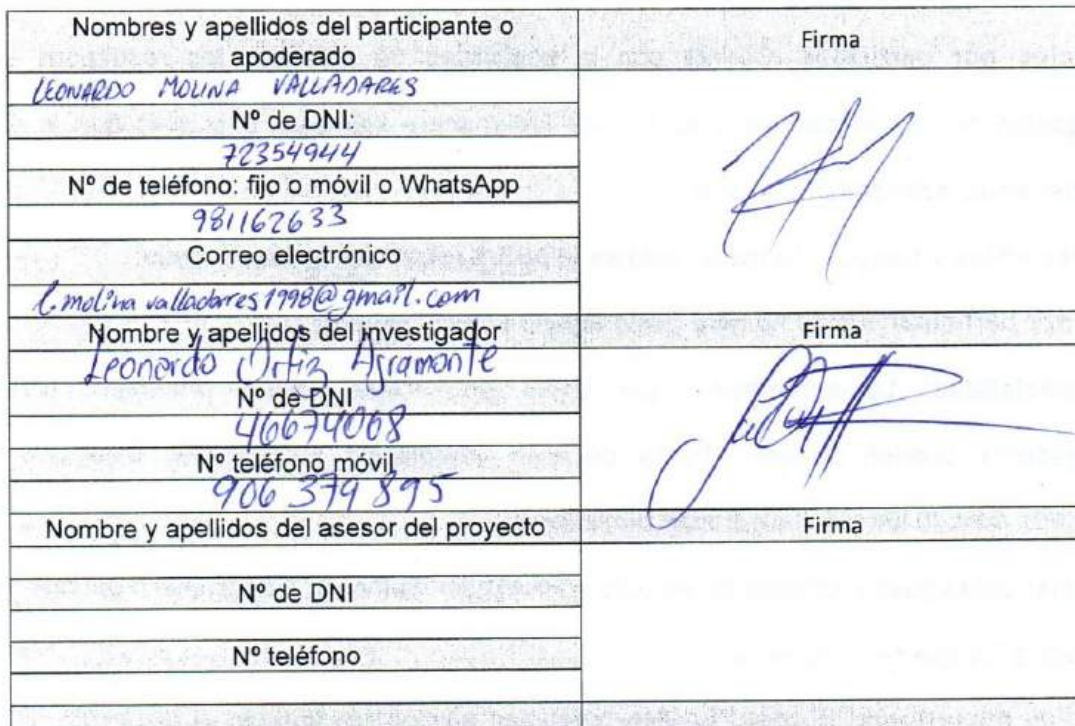 Nombres y apellidos del participante o
apoderado
Firma
LEONARDO MOLINA VALLADARES
Nº de DNI:
72354944
Nº de teléfono: fijo o móvil o WhatsApp
981162633
Correo electrónico
l.molina valladares1998@gmail.com
Nombre y apellidos del investigador
Firma
Leonardo Ortiz Agramonte
Nº de DNI
46674008
Nº teléfono móvil
906 374 895
Nombre y apellidos del asesor del proyecto
Firma
Nº de DNI
Nº teléfono